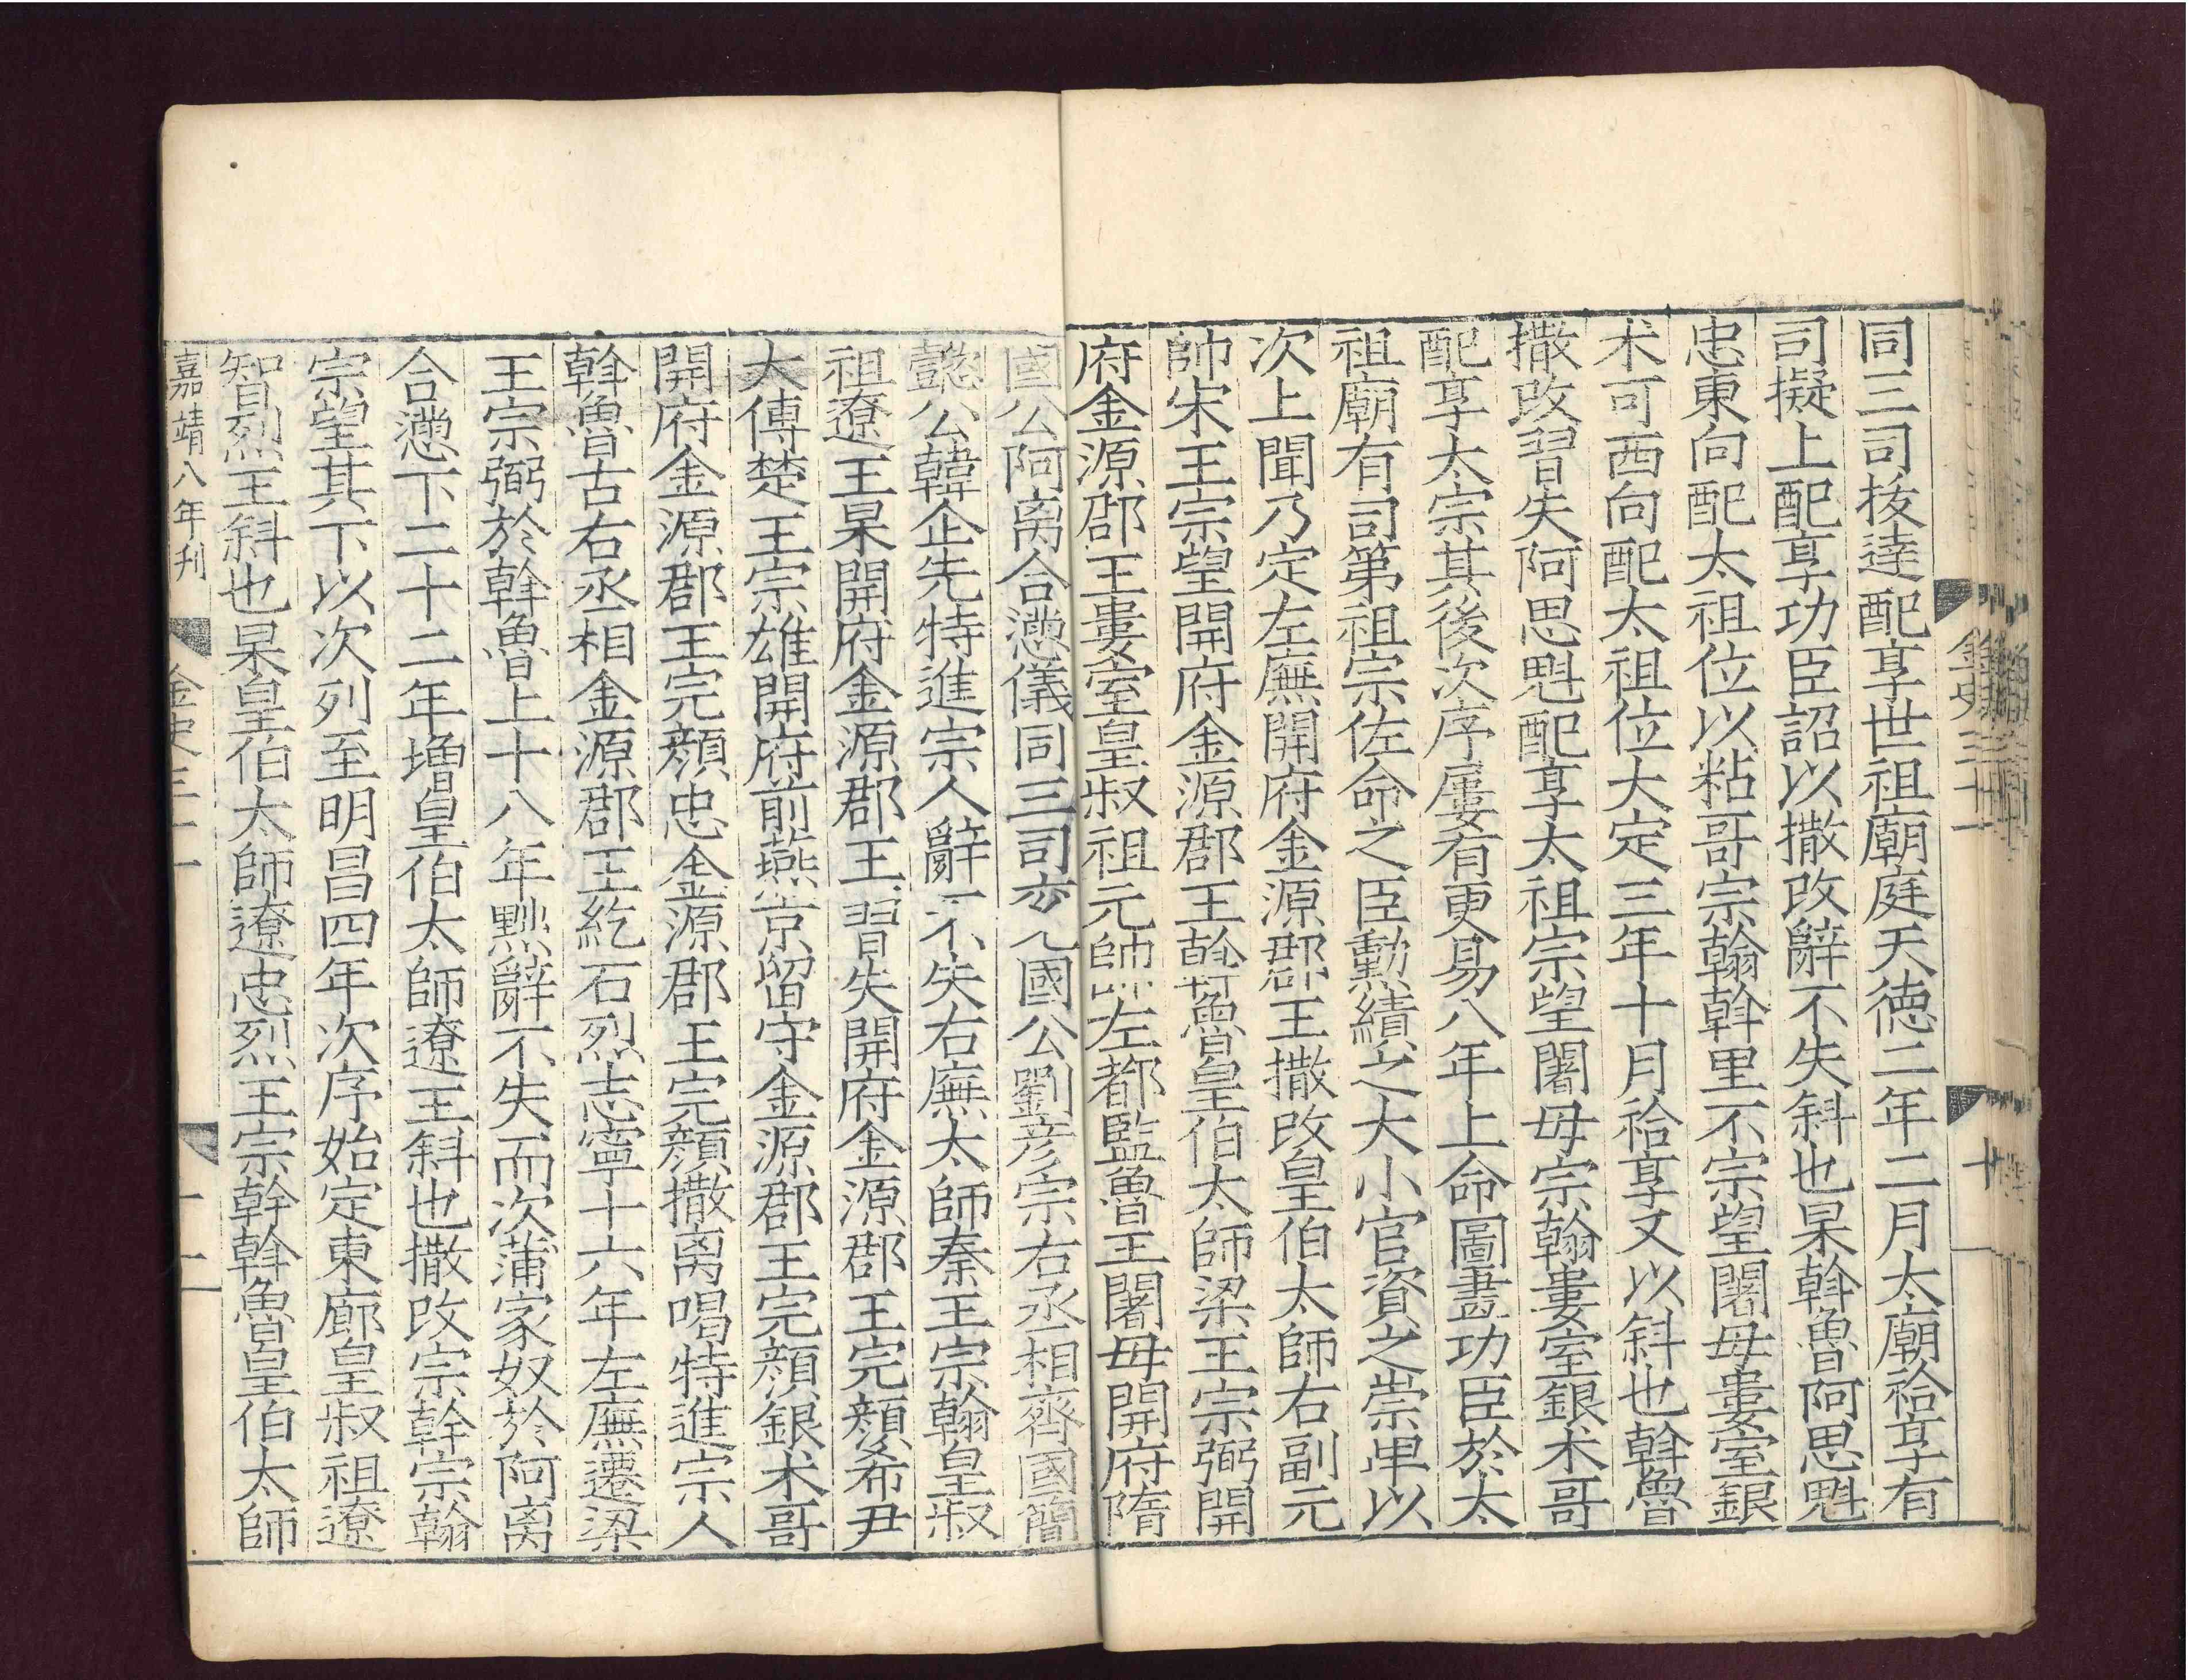 同三司拔達配享世祖廟庭天德二年二月太廟祫享有
司擬上配享功臣詔以撒改辭不失斜也杲斡魯阿思魁
忠東向配太祖位以粘哥宗翰斡里不宗望闍毋婁室銀
术可西向配太祖位大定三年十月祫享又以斜也斡魯
撒改習失阿思魁配享太祖宗望闍毋宗翰婁室銀术哥
配享太宗其後次序屢有更易八年上命圖畫功臣於太
祖廟有司第祖宗佐命之臣勳績之大小官資之崇卑以
次上聞乃定左廡開府金源郡王撒改皇伯太師右副元
帥宋王宗望開府金源郡王斡魯皇伯太師梁王宗弼開
府金源郡王婁室皇叔祖元帥左都監魯王闍毋開府隋
國公阿离合懣儀同三司兖國公劉彦宗右丞相齊國簡
懿公韓企先特進宗人辭不失右廡太師秦王宗翰皇叔
祖遼王杲開府金源郡王習失開府金源郡王完顏希尹
太傅楚王宗雄開府前燕京留守金源郡王完顏銀术哥
開府金源郡王完顏忠金源郡王完顏撒离喝特進宗人
斡魯古右丞相金源郡王紇石烈志寧十六年左廡遷梁
王宗弼於斡魯上十八年黜辭不失而次蒲家奴於阿离
合懣下二十二年增皇伯太師遼王斜也撒改宗幹宗翰
宗望其下以次列至明昌四年次序始定東廊皇叔祖遼
智烈王斜也杲皇伯太師遼忠烈王宗幹斡魯皇伯太師
嘉靖八年刋
金史三十一
十
十一